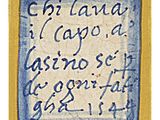 chi lava
il capo, a
lasino se p
de ogni fati
gha 1544